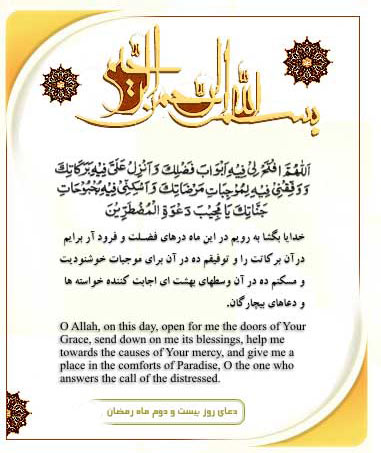 بسم الله الرحمن الرحیم
اَللّهُمَّ افْتَحْ لی فیهِ اَبْوابَ فَضْلِكَ وَ اَنْزِلْ عَلَیَّ فیهِ بَرَكاتِكَ
وَ وَفِّقْنی فیهِ لِمُوجِباتِ مَرْضاتِكَ وَ اَسْكِنّی فیهِ بُحْبُوحاتِ
جَنّاتِكَ یا مُجیبَ دَعْوَةِ الْمُضْطَرّینَ
خدایا بگشا به رویم در این ماه درهای فضلت و فرود آر برایم
درآن برکاتت را و توفیقم ده در آن برای موجبات خوشنودیت
و مسکنم ده در آن وسطهای بهشت ای اجابت کننده خواسته ها
و دعاهای بیچارگان.
O Allah, on this day, open for me the doors of Your
Grace, send down on me its blessings, help me
towards the causes of Your mercy, and give me a
place in the comforts of Paradise, O the one who
answers the call of the distressed.
دعای روز بیست و دوم ماه رمضان